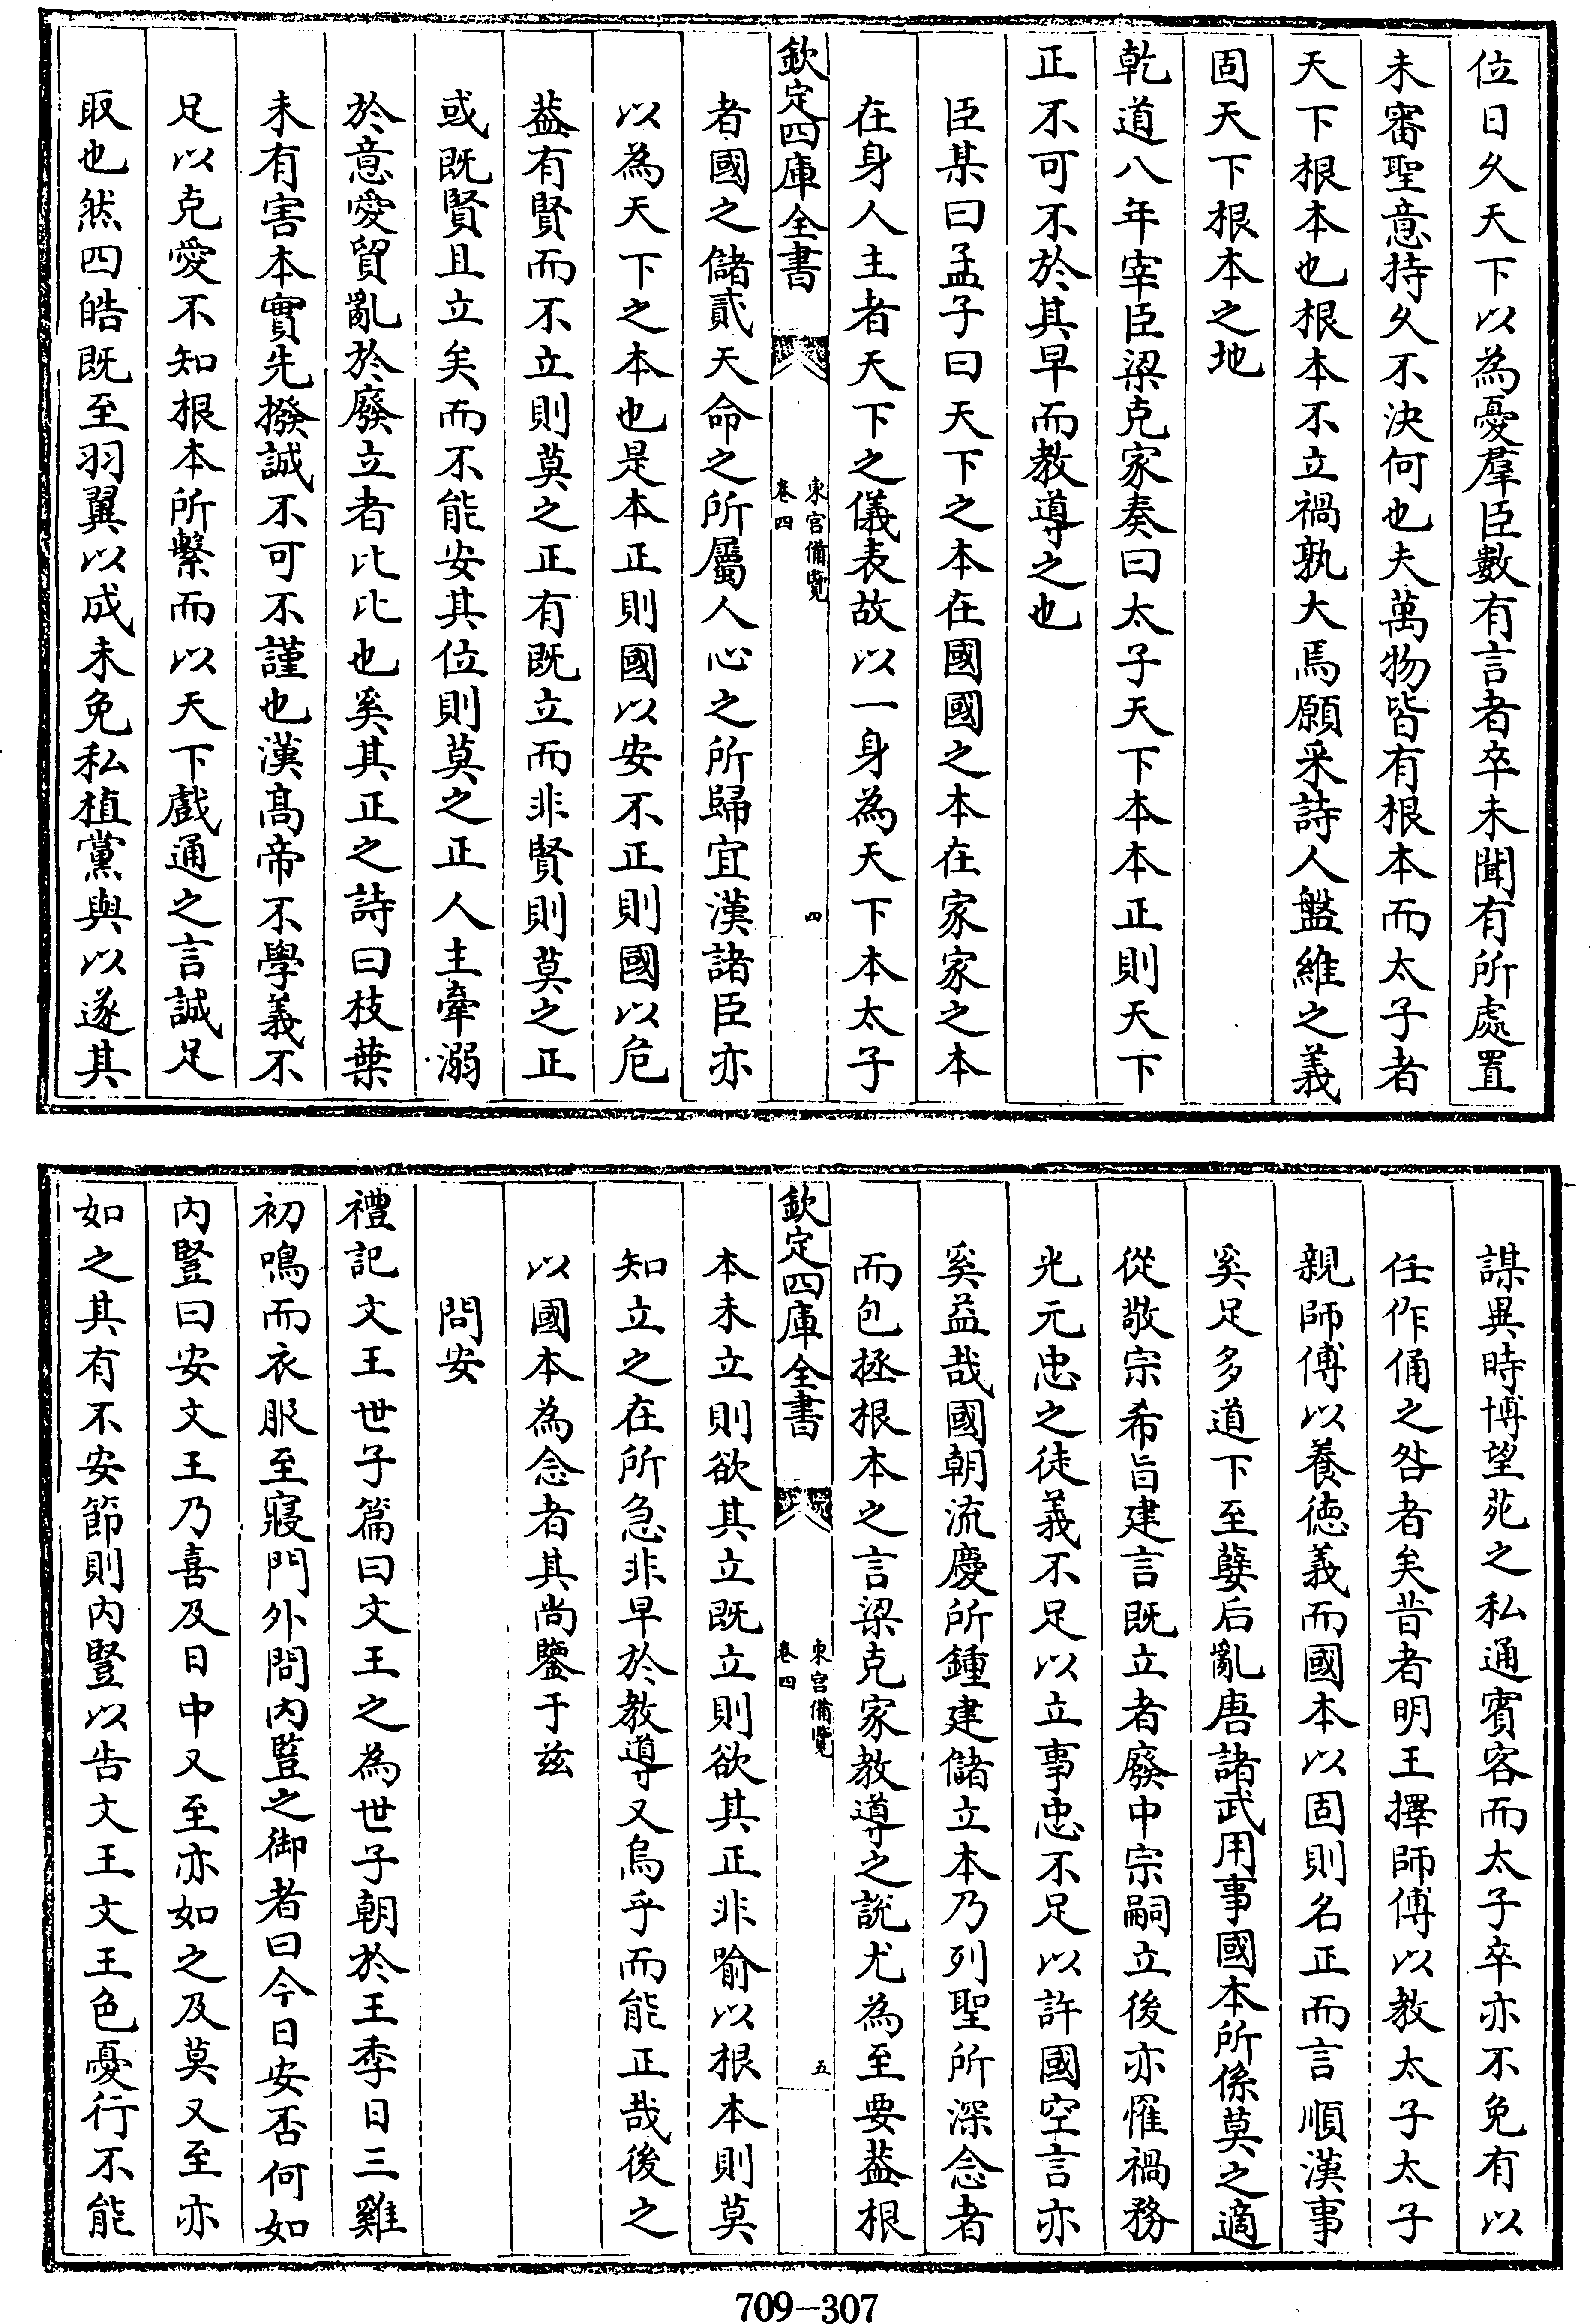 位日久天下以為憂羣臣數有言者卒未聞有所處置
未審聖意持久不決何也夫萬物皆有根本而太子者
天下根本也根本不立禍孰大焉願采詩人盤維之義
固天下根本之地
乾道八年宰臣梁克家奏曰太子天下本本正則天下
正不可不於其早而教導之也
臣某曰孟子曰天下之本在國國之本在家家之本
在身人主者天下之儀表故以一身為天下本太子
欽定四庫全書
東宮備覽
卷四
四
者國之儲貳天命之所屬人心之所歸宜漢諸臣亦
以為天下之本也是本正則國以安不正則國以危
葢有賢而不立則莫之正有既立而非賢則莫之正
或既賢且立矣而不能安其位則莫之正人主牽溺
於意愛貿亂於廢立者比比也奚其正之詩曰枝葉
未有害本實先撥誠不可不謹也漢髙帝不學義不
足以克愛不知根本所繫而以天下戲通之言誠足
取也然四皓既至羽翼以成未免私植黨與以遂其
謀異時博望苑之私通賓客而太子卒亦不免有以
任作俑之咎者矣昔者明王擇師傅以教太子太子
親師傅以養徳義而國本以固則名正而言順漢事
奚足多道下至嬖后亂唐諸武用事國本所係莫之適
從敬宗希旨建言既立者廢中宗嗣立後亦罹禍務
光元忠之徒義不足以立事忠不足以許國空言亦
奚益哉國朝流慶所鍾建儲立本乃列聖所深念者
而包拯根本之言梁克家教導之說尤為至要葢根
欽定四庫全書
東宮備覽
卷四
五
本未立則欲其立既立則欲其正非喻以根本則莫
知立之在所急非早於教導又烏乎而能正哉後之
以國本為念者其尚鑒于兹
問安
禮記文王世子篇曰文王之為世子朝於王季日三雞
初鳴而衣服至寢門外問內豎之御者曰今日安否何如
內豎曰安文王乃喜及日中又至亦如之及莫又至亦
如之其有不安節則內豎以告文王文王色憂行不能
709-307